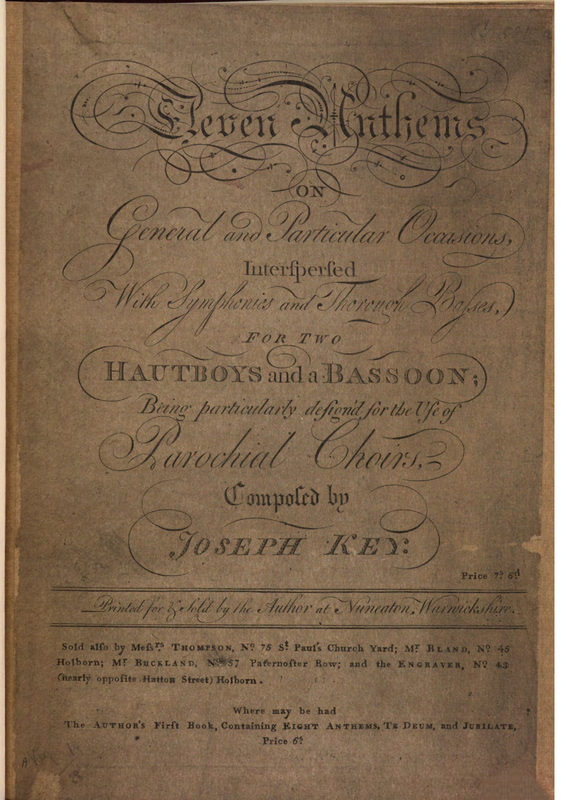 Eleven Anthems
ON
General and Particular Occasions,
Interſperſed
With Symphonies and Thorough Baſses,
FOR TWO
HAUTBOYS and a BASSOON;
Being particularly deſign'd for the Uſe of
Parochial Choirs,
Compoſed by
JOSEPH KEY:
Price 7s. 6d
Printed for & Sold by the Author at Nuneaton, Warwickshire.
Sold alſo by Meſsrs THOMPSON, No 75 St Paul's Church Yard; Mr BLAND, No 45
Holborn; Mr BUCKLAND, No 57 Paternoſter Row; and the ENGRAVER, No 43
(nearly oppoſite Hatton Street) Holborn.
Where may be had
The AUTHOR'S Firſt Book, Containing EIGHT ANTHEMS, TE DEUM, and JUBILATE,
Price 6s.